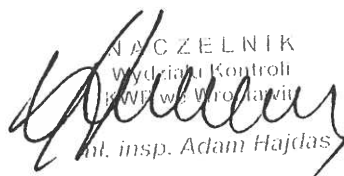 NACZELNIK
Wydziału Kontroli
KWP we Wrocławiu
mł. insp. Adam Hajdas